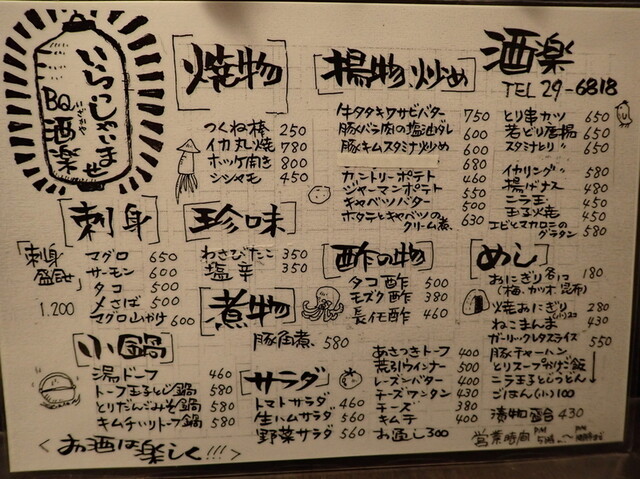 いらっしゃいませ
BQ
酒楽
焼物
つくね棒 250
イカ丸焼 780
ホッケ開き 800
シシャモ 450
揚物 炒め
牛タタキワサビバター 750
豚バラ肉の塩油ダレ 600
豚キムスタミナ炒め 600
680
カントリーポテト 460
ジャーマンポテト 550
キャベツバター 500
ホタテとキャベツのクリーム煮 630
酒楽
TEL 29-6818
とり串カツ 650
若どり唐揚 650
スタミナとり〃 650
イカリング〃 580
揚げナス 480
ニラ玉 450
玉子焼 450
エビとマカロニのグラタン 580
刺身
刺身
盛合せ
1.200
マグロ 650
サーモン 600
タコ 500
〆さば 500
マグロ山かけ 600
珍味
わさびたこ 350
塩辛 350
煮物
豚角煮 580
酢の物
タコ酢 500
モズク酢 380
長イモ酢 460
めし
おにぎり各1コ 180
(梅、かつオ、昆布)
焼おにぎり 280
ねこまんま 430
ガーリックレタスライス 550
豚チャーハン
とりスープかけご飯
ニラ玉とじうどん
ごはん(小)100
漬物盛合 430
小鍋
湯ドーフ 460
トーフ玉子とじ鍋 580
とりだんごみそ鍋 580
キムチ入りトーフ鍋 580
サラダ
トマトサラダ 460
生ハムサラダ 560
野菜サラダ 560
あさつきトーフ 400
荒引ウインナー 500
レーズンバター 400
チーズワンタン 430
チーズ 380
キムチ 400
お通し 300
<お酒は楽しく!!!>
営業時間 PM 5時〜